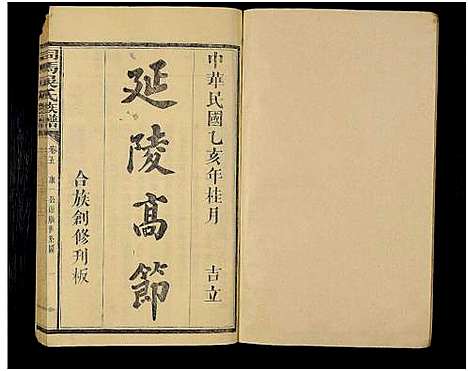 中華民國乙亥年桂月 吉立
延陵高節
合族創修刊板
司馬吳氏族譜
卷五